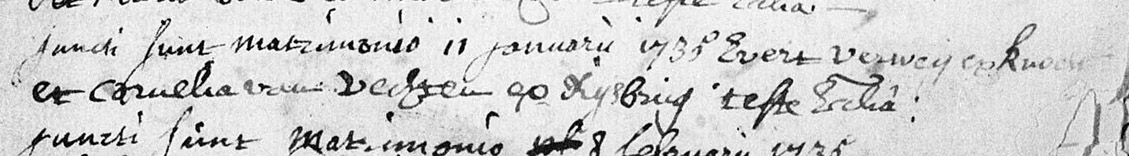 teste Ecclia
juncti sunt matrimonio 11 januarii 1735 Evert verweij ex
et cornelia van Vechten ex Rijsbrug teste Ecclia:
juncti sunt Matrimonio 8 februarii 1735